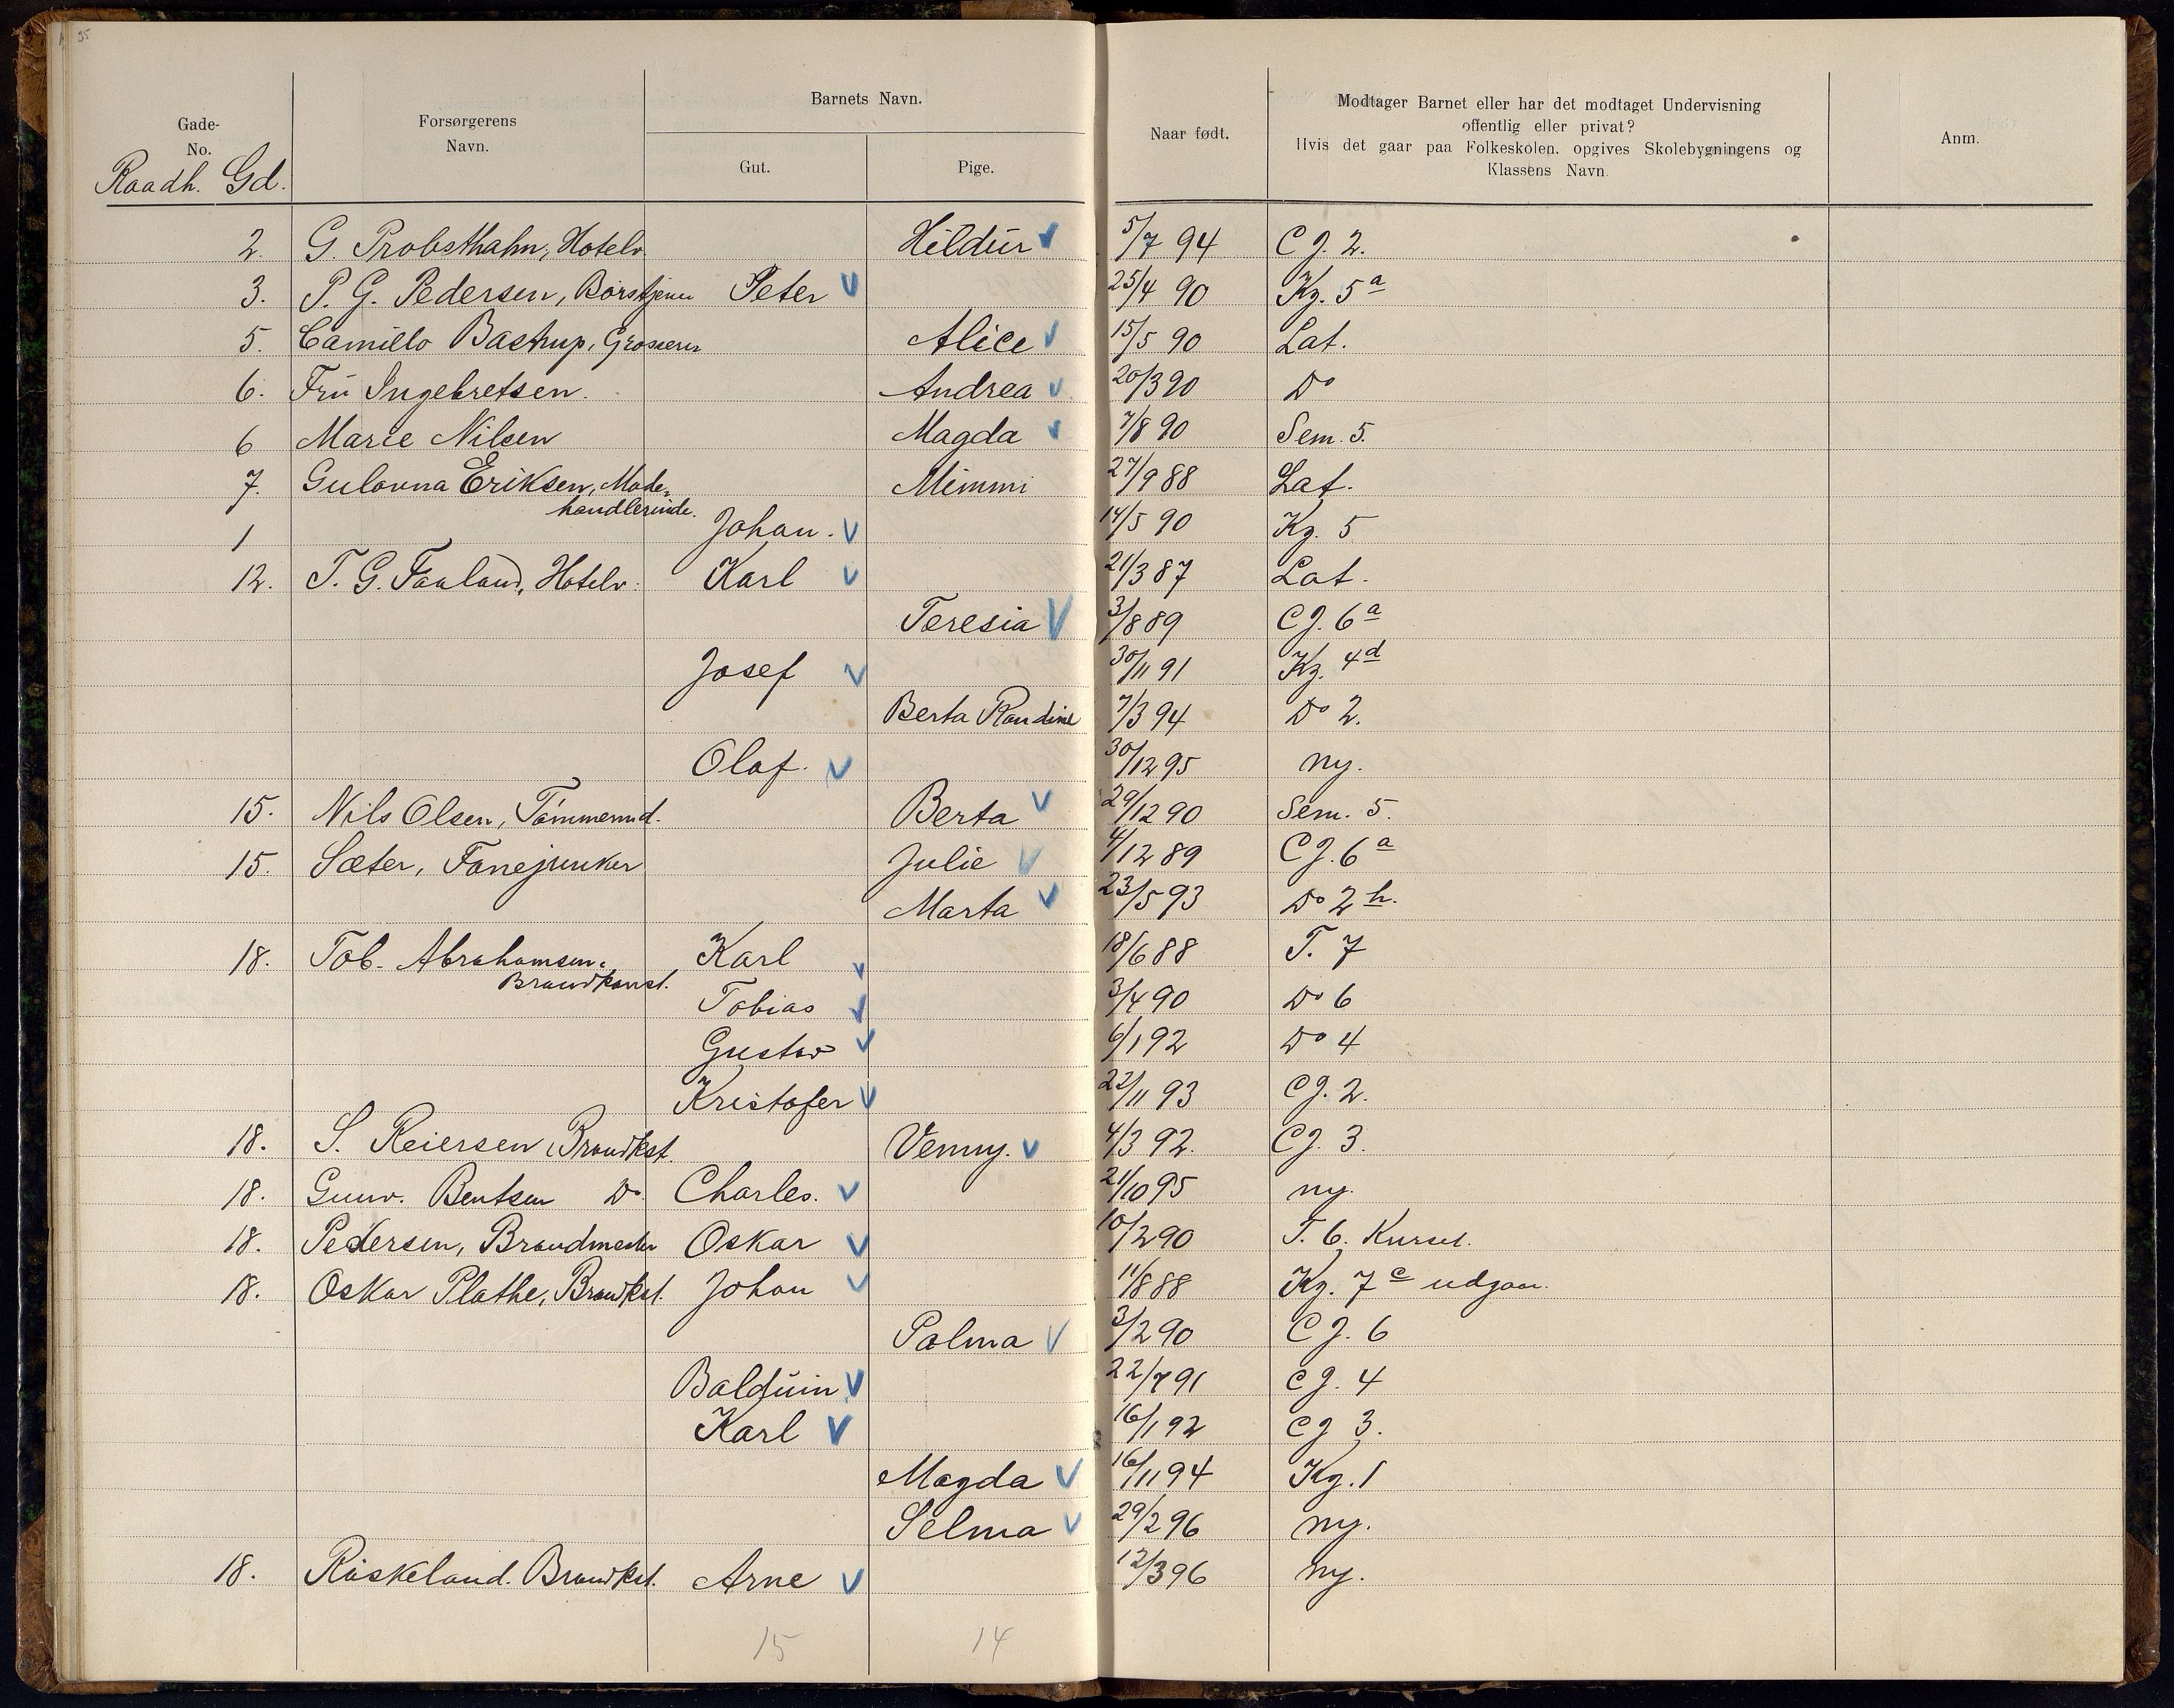 95
Gade-
No.
Forsørgerens
Navn.
Barnets Navn.
Gut.
Pige.
Naar født.
Modtager Barnet eller har det modtaget Undervisning
offentlig eller privat?
Hvis det gaar paa Folkeskolen, opgives Skolebygningens og
Klassens Navn.
Anm.
Raadh. Gd.
2. G. Probsthahn, Hotelv. Hildur 5/7 94 C J. 2.
3. P. G. Pedersen, Børstjener Peter 25/4 90 Kg. 5a
5. Camillo Bastrup, Grosserer Alice 15/5 90 Lat.
6. Fru Ingebretsen. Andrea 20/3 90 Do
6 Marie Nilsen Magda 7/8 90 Sem. 5.
7. Gulovna Eriksen, Mode- Mimmi 27/9 88 Lat.
handlerinde.
1 Johan. 14/5 90 Kg. 5
12. T. G. Faaland, Hotelv. Karl 21/3 87 Lat.
Teresia 3/8 89 C J. 6a
Josef 30/11 91 Kg. 4d
Berta Randine 7/3 94 Do 2.
Olaf. 30/12 95 ny.
15. Nils Olsen, Tømmermd. Berta 29/12 90 Sem. 5.
15. Sæter, Fanejunker Julie 4/12 89 C J. 6a
Marta 23/5 93 Do 2h.
18. Tob. Abrahamsen, Karl 18/6 88 T. 7
Brandkonst.
Tobias 3/4 90 Do 6
Gustav 6/1 92 Do 4
Kristofer 22/11 93 C J. 2.
18. S. Reiersen, Brandkst. Venny. 4/3 92. C J. 3.
18. Gunv. Bentsen Do. Charles. 21/10 95 ny.
18. Pedersen, Brandmester Oskar 10/2 90 T. 6. Kursel.
18. Oskar Plathe, Brandkst. Johan 11/8 88 Kg. 7c udgaar.
Palma 3/2 90 C J. 6
Balduin 22/7 91 C J. 4
Karl 16/1 92 C J 3.
Magda 16/11 94 Kg. 1
Selma 29/2 96 ny.
18. Røskeland. Brandkst. Arne 12/3 96 ny.
15 14